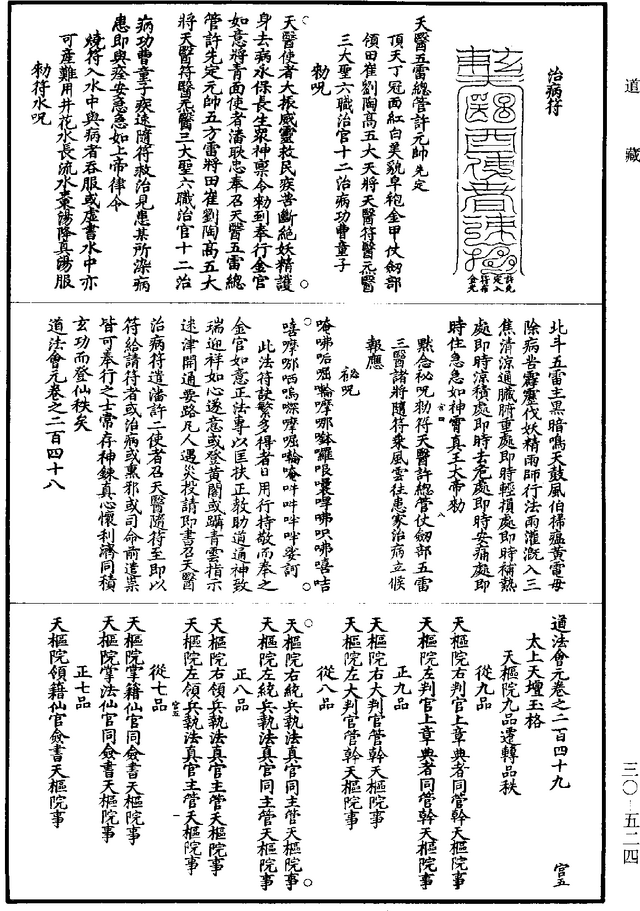 道藏
治病符
天醫五雷總管許元帥先定
頂天丁冠西紅白美貌皁袍金甲仗劒部
領田崔劉陶高五大天將天醫符醫元醫
三大聖六職治官十二治病功曹童子
勑呪
天醫使者大振威靈救民疾苦斷絶妖精護
身去病永保長生衆神稟令勑到奉行金官
如意將青面使者潘耿忠奉召天醫五雷總
管許先定元帥五方雷將田崔劉陶高五大
將天醫符醫元醫三大聖六職治官十二治
病功曹童子疾速隨符救治見患某所染病
患即與痊安急急如上帝律令
燒符入水中與病者吞服或虛書水中亦
可產難用井花水長流水棗湯降真湯服
勑符水呪
北斗五雷主黑暗鳴天鼓風伯掃瘟黃雷母
除病苦霹靂伐妖精雨師行法雨灌溉入三
焦清涼通臟腑重處即時輕損處即時補熱
處即時涼積處即時去危處即時安痛處即
時住急急如神霄真王大帝勑
默念祕呪勑符天醫許總管仗劒部五雷
三醫諸將隨符乘風雲往患家治病立候
報應
祕呪
此法符訣繁多得者日用行持敬而奉之
金官如意正法專以匡扶正教助道通神致
瑞迎祥如心遂意或登黃閣或躡青雲指示
迷津開通要路凡人遇災投請即書召天醫
治病符遣潘許二使者召天醫隨符至即以
符給請符者或治病或熏邪或司命前遣祟
皆可奉行之士常存神鍊真心懷利濟同積
玄功而登仙秩矣
道法會元卷之二百四十八
道法會元卷之二百四十九 宫五
太上天壇玉格
天樞院九品遷轉品秩
從九品
天樞院右判官上章典者同管幹天樞院事
天樞院左判官上章典者同管幹天樞院事
正九品
天樞院右大判官管幹天樞院事
天樞院左大判官管幹天樞院事
從八品
天樞院右統兵執法真官同主管天樞院事
天樞院左統兵執法真官同主管天樞院事
正八品
天樞院右領兵執法真官主管天樞院事
天樞院左領兵執法真官主管天樞院事
從七品
天樞院掌籍仙官同僉書天樞院事
天樞院掌法仙官同僉書天樞院事
正七品
天樞院領籍仙官僉書天樞院事
三〇—五二四